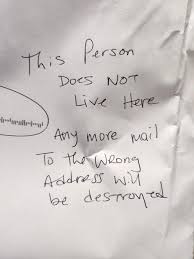 This Person
Does Not
Live Here
Any more mail
To the wrong
Address will
be destroyed